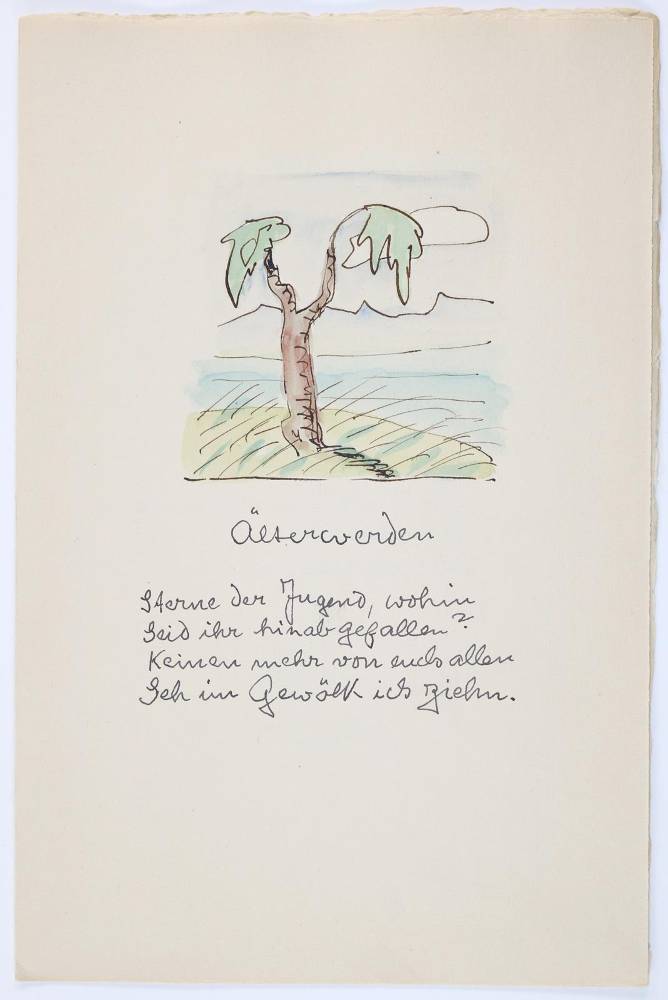 Älterwerden
Sterne der Jugend, wohin
Seid ihr hinab gefallen?
Keinen mehr von euch allen
Seh im Gewölk ich ziehn.